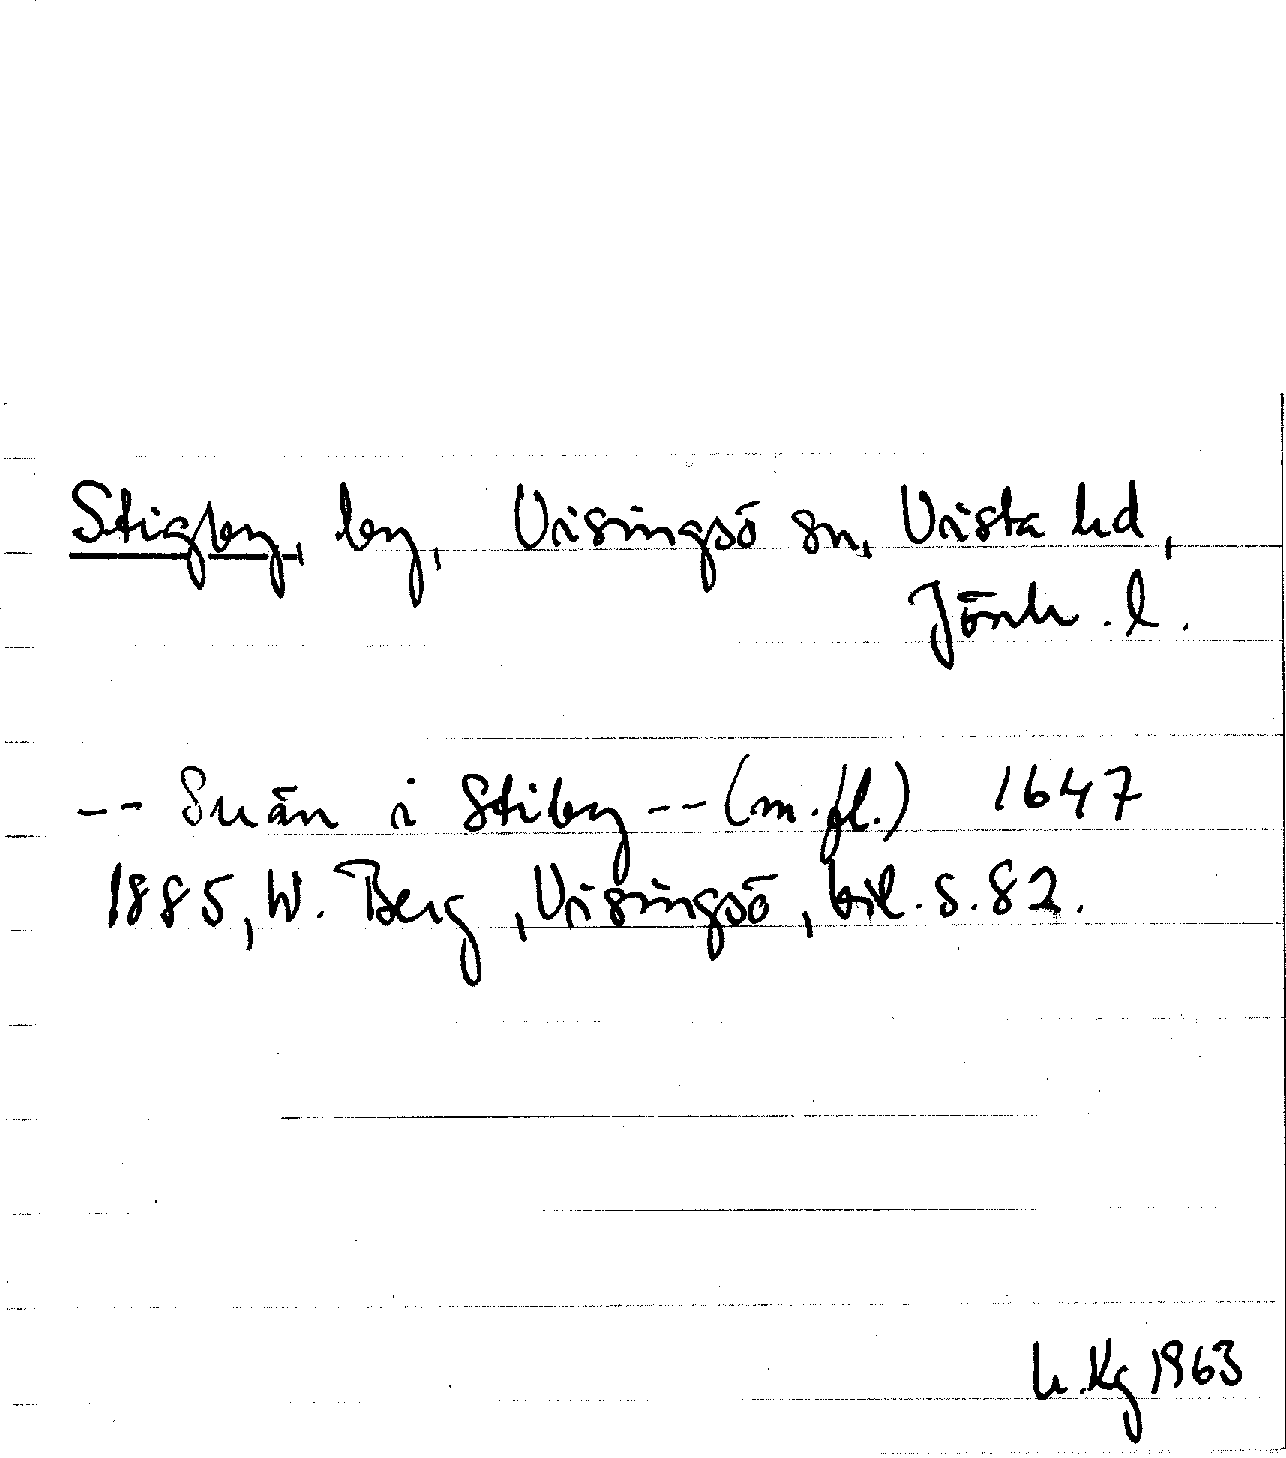 Stigby, by, Visingsö sn, Vista hd,
Jönk. l.
-- Suän i Stiby -- (m.fl.) 1647
1885, W. Berg, Visingsö, bil. s. 82.
h. Kg 1963